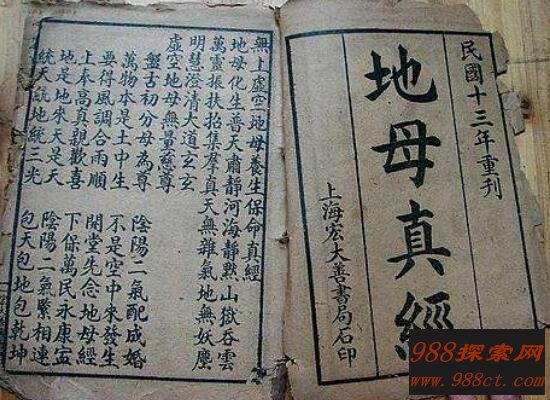 民國十三年重刊
地母真經
上海宏大善書局石印
無上虛空地母養生保命真經
地母化生普天肅靜河海靜默山嶽吞雲
萬靈振扶抬集羣真天無雜氣地無妖塵
明慧澄清大道玄玄
虛空地母無量慈尊
盤古初分母為尊 陰陽二氣配成婚
萬物本是土中生 不是空中來發生
要得風調合雨順 開堂先念地母經
上奉高真親歡喜 下保萬民永康寧
地是地來天是天 陰陽二氣緊相連
統天統地統三光 包天包地包乾坤
988探索网
www.988ct.com